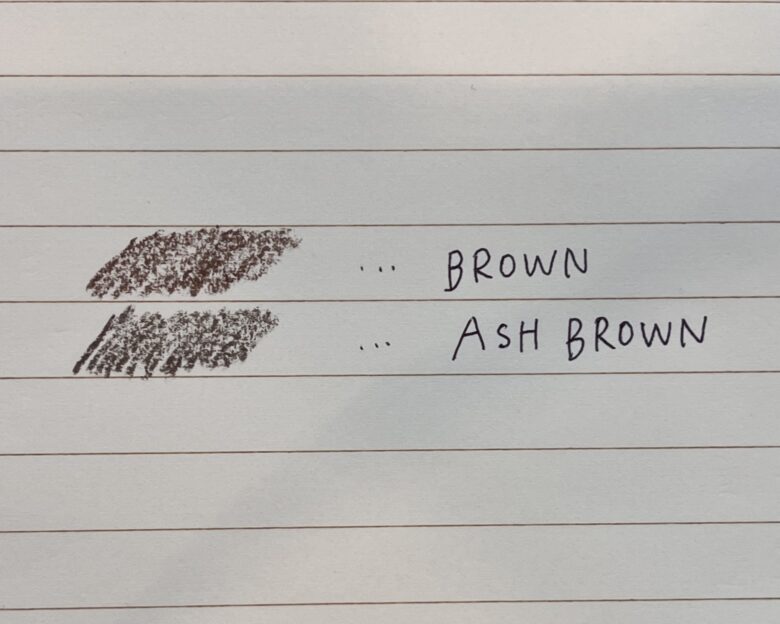 ... BROWN
... ASH BROWN